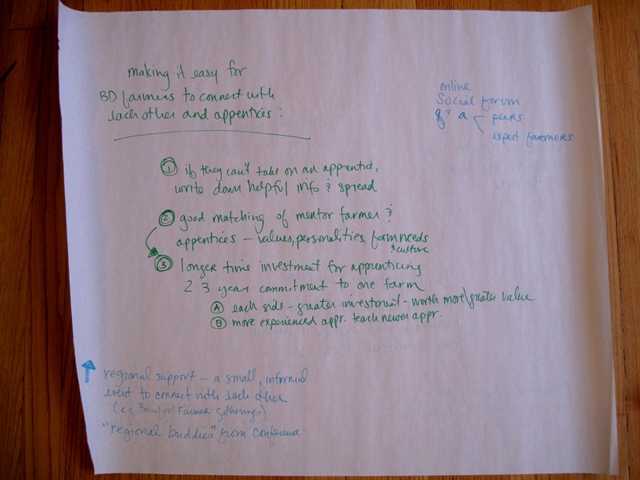 making it easy for
BD farmers to connect with
each other and apprentices:
online
Social forum
q & a - peers
expert farmers
① if they can't take on an apprentice,
write down helpful info & spread
② good matching of mentor farmer &
apprentices - values, personalities, farm needs
& culture
③ longer time investment for apprenticing
2 3 year commitment to one farm
Ⓐ each side - greater investment - worth more/greater value
Ⓑ more experienced appr. teach newer appr.
regional support - a small, informal
event to connect with each other
(e.g. Farmer Gatherings)
"regional buddies" from conference